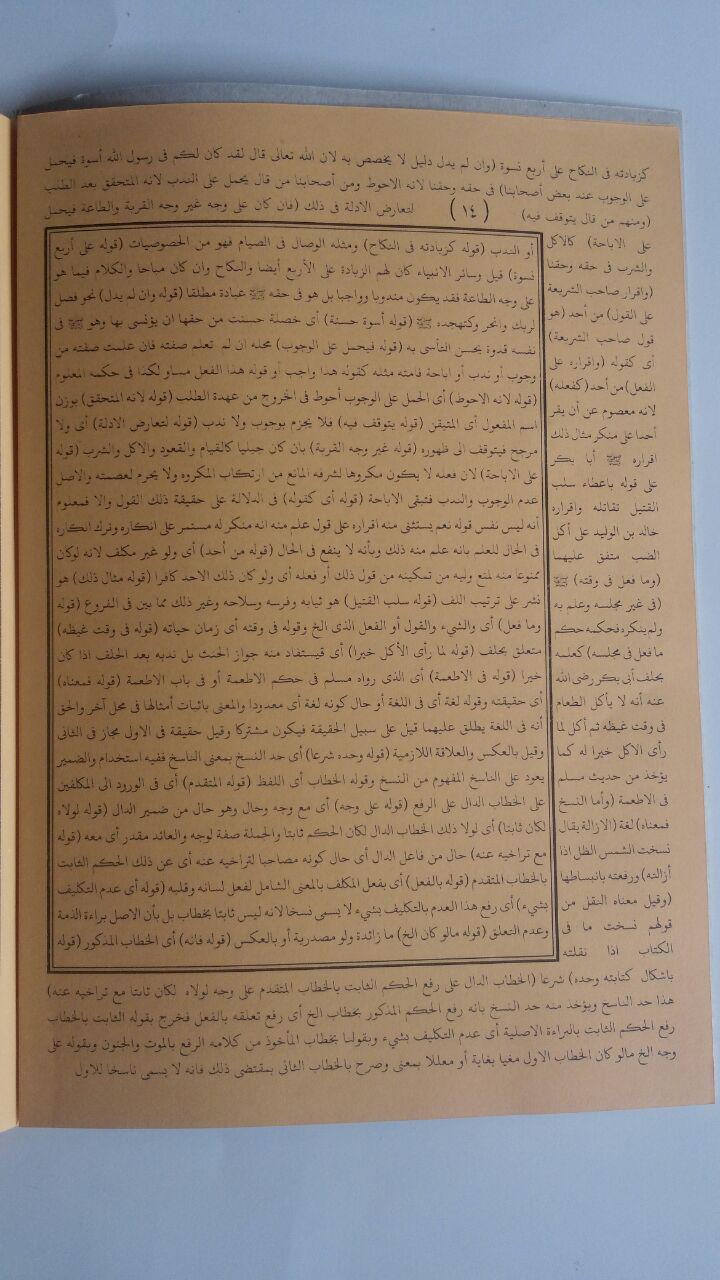 كزيادته فى النكاح على أربع نسوة (وان لم يدل دليل لا يخصص به لان الله تعالى قال لقد كان لكم فى رسول الله أسوة فيحمل
على الوجوب عند بعض أصحابنا) فى حقه وحقنا لانه الاحوط ومن أصحابنا من قال يحمل على الندب لانه المتحقق بعد الطلب
(ومنهم من قال يتوقف فيه) (١٤) لتعارض الادلة فى ذلك (فان كان على وجه غير وجه القربة والطاعة فيحمل
على الاباحة) كالاكل
والشرب فى حقه وحقنا
(واقرار صاحب الشريعة
على القول) من أحد (هو
قول صاحب الشريعة)
أى كقوله (واقراره على
الفعل) من أحد (كفعله)
لانه معصوم عن أن يقر
أحدا على منكر مثال ذلك
اقراره ﷺ أبا بكر
على قوله باعطاء سلب
القتيل لقاتله واقراره
خالد بن الوليد على أكل
الضب متفق عليهما
(وما فعل فى وقته) ﷺ
(فى غير مجلسه وعلم به
ولم ينكره فحكمه حكم
ما فعل فى مجلسه) كعلمه
بحلف أبى بكر رضى الله
عنه أنه لا يأكل الطعام
فى وقت غيظه ثم أكل لما
رأى الاكل خيرا له كما
يؤخذ من حديث مسلم
فى الاطعمة (وأما النسخ
فمعناه) لغة (الازالة يقال
نسخت الشمس الظل اذا
أزالته) ورفعته بانبساطها
(وقيل معناه النقل من
قولهم نسخت ما فى
الكتاب اذا نقلته
باشكال كتابته وحده) شرعا (الخطاب الدال على رفع الحكم الثابت بالخطاب المتقدم على وجه لولاه لكان ثابتا مع تراخيه عنه)
هذا حد الناسخ ويؤخذ منه حد النسخ بانه رفع الحكم المذكور بخطاب الخ أى رفع تعلقه بالفعل فخرج بقوله الثابت بالخطاب
رفع الحكم الثابت بالبراءة الاصلية أى عدم التكليف بشيء وبقولنا بخطاب المأخوذ من كلامه الرفع بالموت والجنون وبقوله على
وجه الخ مالو كان الخطاب الاول مغيا بغاية أو معللا بمعنى وصرح بالخطاب الثانى بمقتضى ذلك فانه لا يسمى ناسخا للاول
أو الندب (قوله كزيادته فى النكاح) ومثله الوصال فى الصيام فهو من الخصوصيات (قوله على أربع
نسوة) قيل وسائر الانبياء كان لهم الزيادة على الأربع أيضا والنكاح وان كان مباحا والكلام فيما هو
على وجه الطاعة فقد يكون مندوبا وواجبا بل هو فى حقه ﷺ عبادة مطلقا (قوله وان لم يدل) نحو فصل
لربك وانحر وكتهجده ﷺ (قوله أسوة حسنة) أى خصلة حسنة من حقها ان يؤتسى بها وهو ﷺ فى
نفسه قدوة يحسن التأسى به (قوله فيحمل على الوجوب) محله ان لم تعلم صفته فان علمت صفته من
وجوب أو ندب أو اباحة فامته مثله كقوله هذا واجب أو قوله هذا الفعل مساو لكذا فى حكمه المعلوم
(قوله لانه الاحوط) أى الحمل على الوجوب أحوط فى الخروج من عهدة الطلب (قوله لانه المتحقق) بوزن
اسم المفعول أى المتيقن (قوله يتوقف فيه) فلا يجزم بوجوب ولا ندب (قوله لتعارض الادلة) أى ولا
مرجح فيتوقف الى ظهوره (قوله غير وجه القربة) بان كان جبليا كالقيام والقعود والاكل والشرب (قوله
على الاباحة) لان فعله لا يكون مكروها لشرفه المانع من ارتكاب المكروه ولا يحرم لعصمته والاصل
عدم الوجوب والندب فتبقى الاباحة (قوله أى كقوله) فى الدلالة على حقيقة ذلك القول والا فمعلوم
أنه ليس نفس قوله نعم يستثنى منه اقراره على قول علم منه انه منكر له مستمر على انكاره وترك انكاره
فى الحال للعلم بانه علم منه ذلك وبأنه لا ينفع فى الحال (قوله من أحد) أى ولو غير مكلف لانه لوكان
ممنوعا منه لمنع وليه من تمكينه من قول ذلك أو فعله أى ولو كان ذلك الاحد كافرا (قوله مثال ذلك) هو
نشر على ترتيب اللف (قوله سلب القتيل) هو ثيابه وفرسه وسلاحه وغير ذلك مما بين فى الفروع (قوله
وما فعل) أى والشيء والقول أو الفعل الذى الخ وقوله فى وقته أى زمان حياته (قوله فى وقت غيظه)
متعلق بحلف (قوله لما رأى الأكل خيرا) أى فيستفاد منه جواز الحنث بل ندبه بعد الحلف اذا كان
خيرا (قوله فى الاطعمة) أى الذى رواه مسلم فى حكم الاطعمة أو فى باب الاطعمة (قوله فمعناه)
أى حقيقته وقوله لغة أى فى اللغة أو حال كونه لغة أى معدودا والمعنى باثبات أمثالها فى محل آخر والحق
أنه فى اللغة يطلق عليهما قيل على سبيل الحقيقة فيكون مشتركا وقيل حقيقة فى الاول مجاز فى الثانى
وقيل بالعكس والعلاقة اللازمية (قوله وحده شرعا) أى حد النسخ بمعنى الناسخ ففيه استخدام والضمير
يعود على الناسخ المفهوم من النسخ وقوله الخطاب أى اللفظ (قوله المتقدم) أى فى الورود الى المكلفين
على الخطاب الدال على الرفع (قوله على وجه) أى مع وجه وحال وهو حال من ضمير الدال (قوله لولاه
لكان ثابتا) أى لولا ذلك الخطاب الدال لكان الحكم ثابتا والجملة صفة لوجه والعائد مقدر أى معه (قوله
مع تراخيه عنه) حال من فاعل الدال أى حال كونه مصاحبا لتراخيه عنه أى عن ذلك الحكم الثابت
بالخطاب المتقدم (قوله بالفعل) أى بفعل المكلف بالمعنى الشامل لفعل لسانه وقلبه (قوله أى عدم التكليف
بشيء) أى رفع هذا العدم بالتكليف بشيء لا يسمى نسخا لانه ليس ثابتا بخطاب بل بأن الاصل براءة الذمة
وعدم التعلق (قوله مالو كان الخ) ما زائدة ولو مصدرية أو بالعكس (قوله فانه) أى الخطاب المذكور (قوله